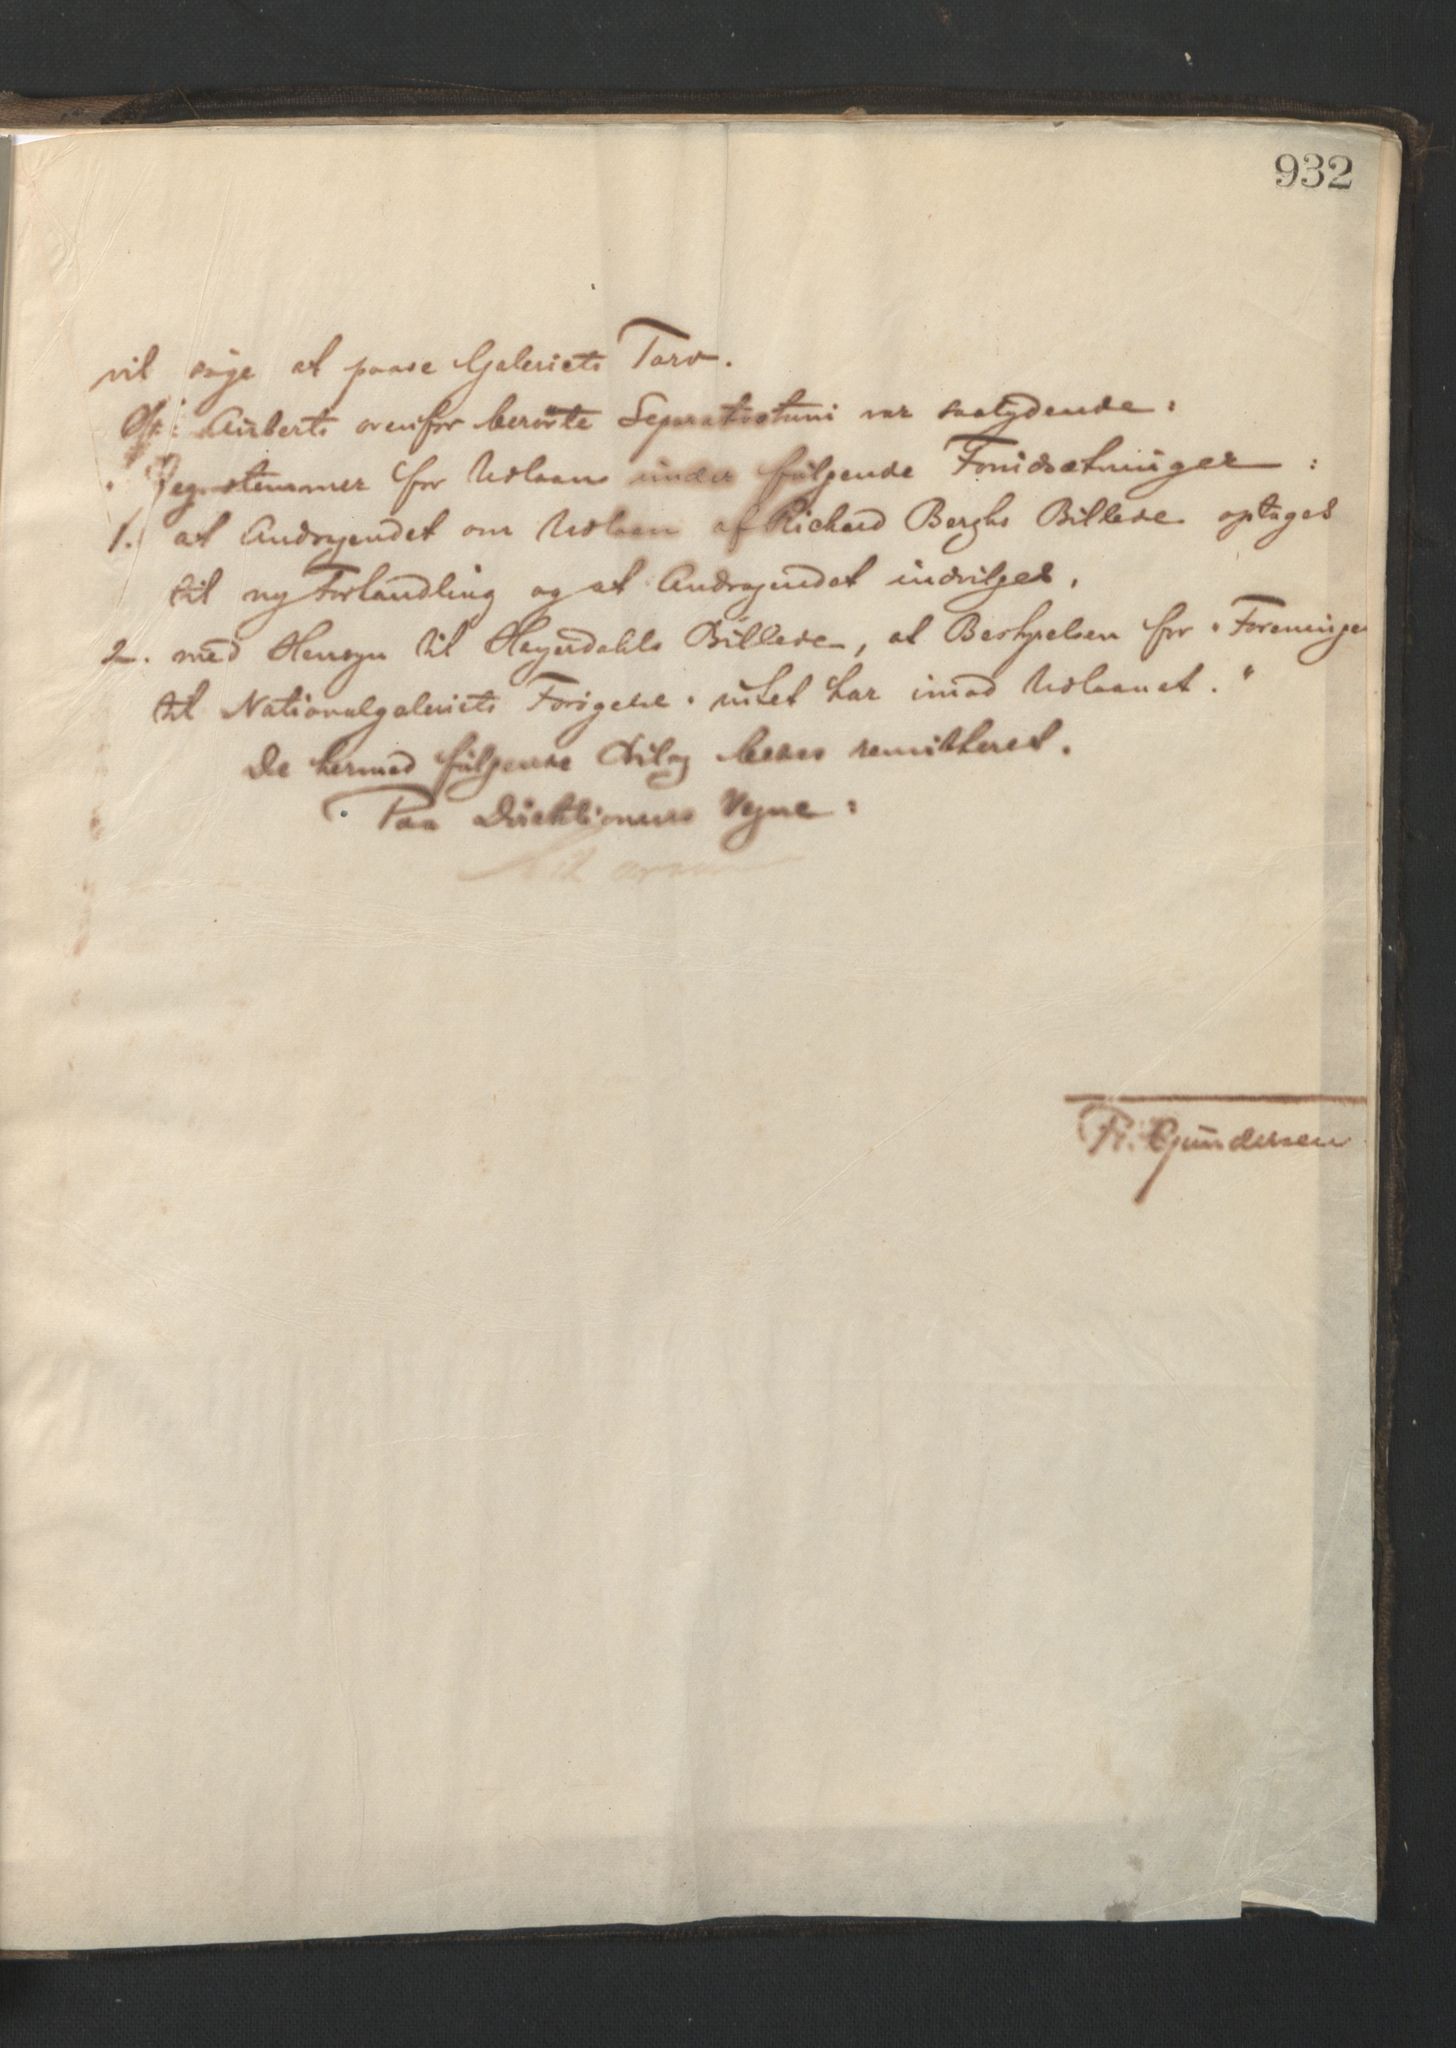 932
vil søge at paase Galeriets Tarv.
Auberts ovenfor berørte Separatvotum var saalydende:
"Jeg stemmer for Udlaan under følgende Forudsætninger:
1. at Andragendet om Udlaan af Richard Berghs Billede optages
til ny Forhandling og at Andragendet indvilges,
2. med Hensyn til Heyerdahls Billede, at Bestyrelsen for "Foreningen
til Nationalgaleriets Forøgelse" intet har imod Udlaanet."
De hermed følgende Bilag bedes remitteret.
Paa Direktionens Vegne:
Fr. Gjundersen